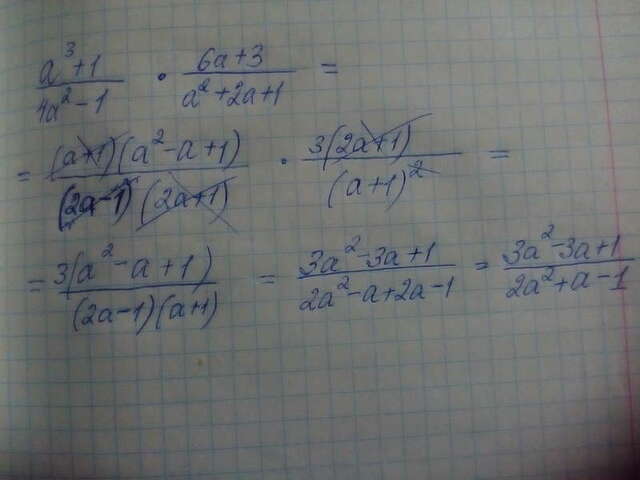 a³+1 / 4a²-1 · 6a+3 / a²+2a+1 =
= (a+1)(a²-a+1) / (2a-1)(2a+1) · 3(2a+1) / (a+1)² =
= 3(a²-a+1) / (2a-1)(a+1) = 3a²-3a+1 / 2a²-a+2a-1 = 3a²-3a+1 / 2a²+a-1